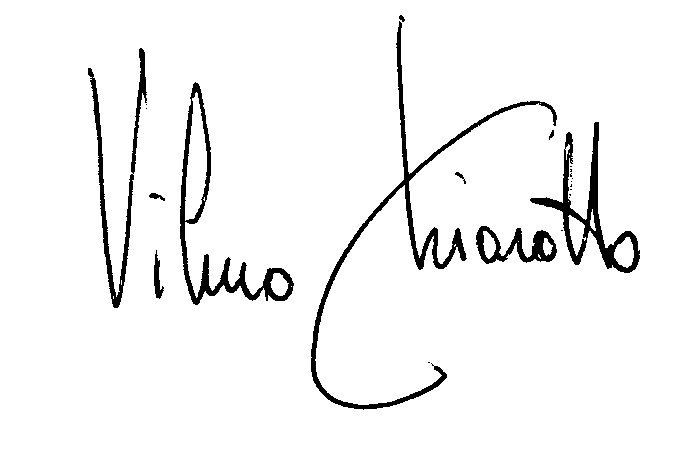 Vilmo Chiarotto